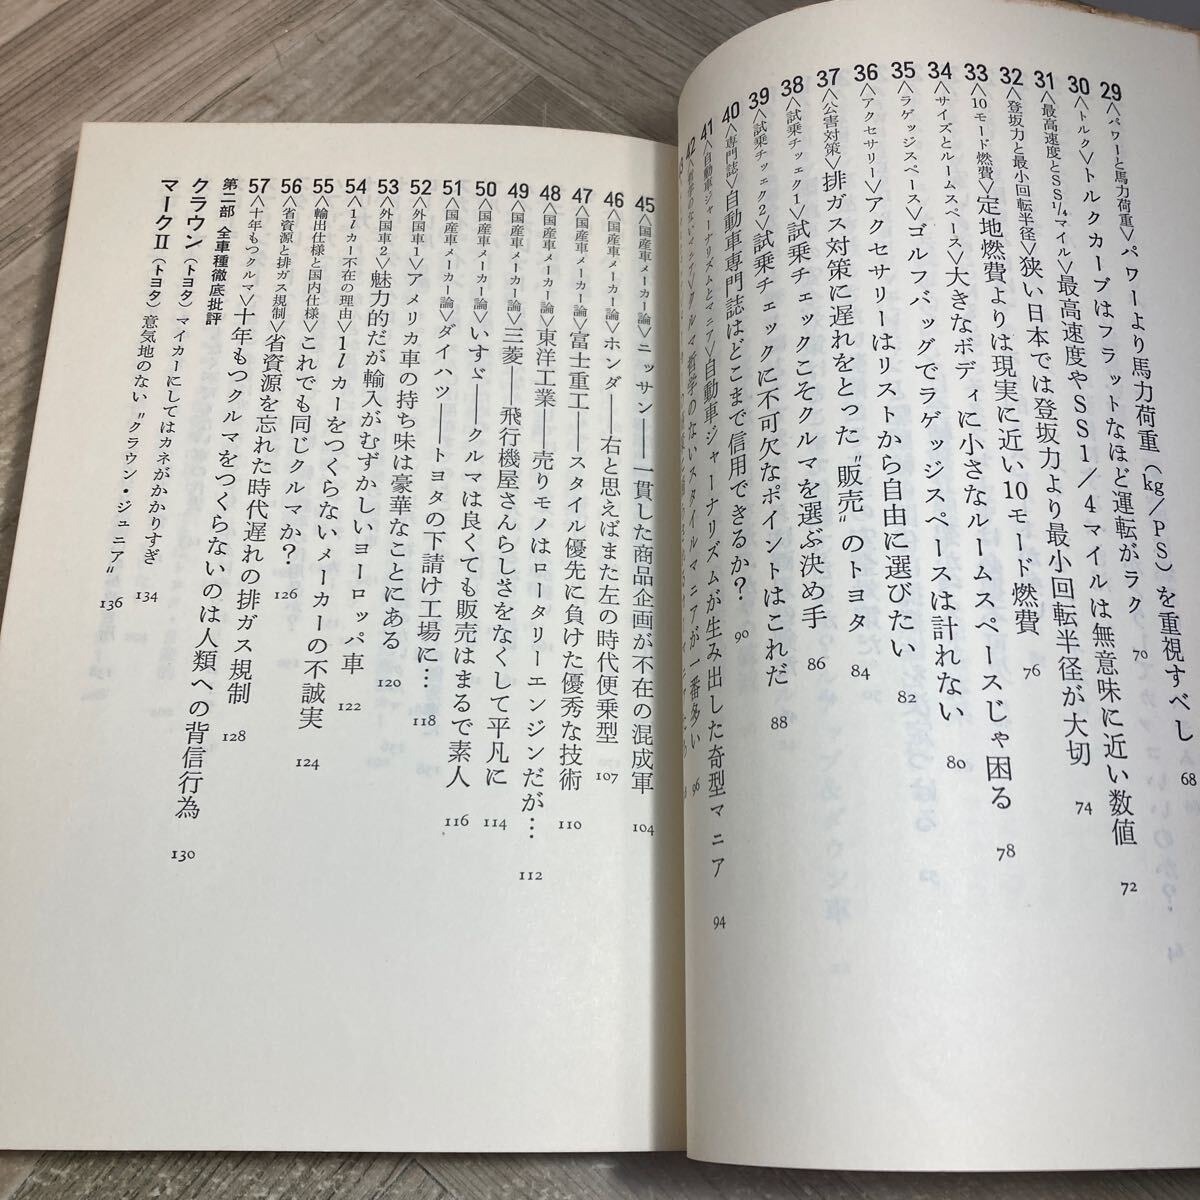 29〈パワーと馬力荷重〉パワーより馬力荷重（kg/PS）を重視すべし 68
30〈トルク〉トルクカーブはフラットなほど運転がラク 70
31〈最高速度とSS1/4マイル〉最高速度やSS1/4マイルは無意味に近い数値 72
32〈登坂力と最小回転半径〉狭い日本では登坂力より最小回転半径が大切 74
33〈10モード燃費〉定地燃費よりは現実に近い10モード燃費 76
34〈サイズとルームスペース〉大きなボディに小さなルームスペースじゃ困る 78
35〈ラゲッジスペース〉ゴルフバッグでラゲッジスペースは計れない 80
36〈アクセサリー〉アクセサリーはリストから自由に選びたい 82
37〈公害対策〉排ガス対策に遅れをとった〝販売〟のトヨタ 84
38〈試乗チェック1〉試乗チェックこそクルマを選ぶ決め手 86
39〈試乗チェック2〉試乗チェックに不可欠なポイントはこれだ 88
40〈専門誌〉自動車専門誌はどこまで信用できるか? 90
41〈自動車ジャーナリズムとマニア〉自動車ジャーナリズムが生み出した奇型マニア 94
42〈哲学のないマニア〉クルマ哲学のないスタイルマニアが一番多い 96
45〈国産車メーカー論〉ニッサン――一貫した商品企画が不在の混成軍 104
46〈国産車メーカー論〉ホンダ――右と思えばまた左の時代便乗型 107
47〈国産車メーカー論〉富士重工――スタイル優先に負けた優秀な技術 110
48〈国産車メーカー論〉東洋工業――売りモノはロータリーエンジンだが… 112
49〈国産車メーカー論〉三菱――飛行機屋さんらしさをなくして平凡に 114
50〈国産車メーカー論〉いすゞ――クルマは良くても販売はまるで素人 116
51〈国産車メーカー論〉ダイハツ――トヨタの下請け工場に… 118
52〈外国車1〉アメリカ車の持ち味は豪華なことにある 120
53〈外国車2〉魅力的だが輸入がむずかしいヨーロッパ車 122
54〈1lカー不在の理由〉1lカーをつくらないメーカーの不誠実 124
55〈輸出仕様と国内仕様〉これでも同じクルマか? 126
56〈省資源と排ガス規制〉省資源を忘れた時代遅れの排ガス規制 128
57〈十年もつクルマ〉十年もつクルマをつくらないのは人類への背信行為 130
第二部 全車種徹底批評
クラウン（トヨタ）マイカーにしてはカネがかかりすぎ 134
マークII（トヨタ）意気地のない〝クラウン・ジュニア〟 136